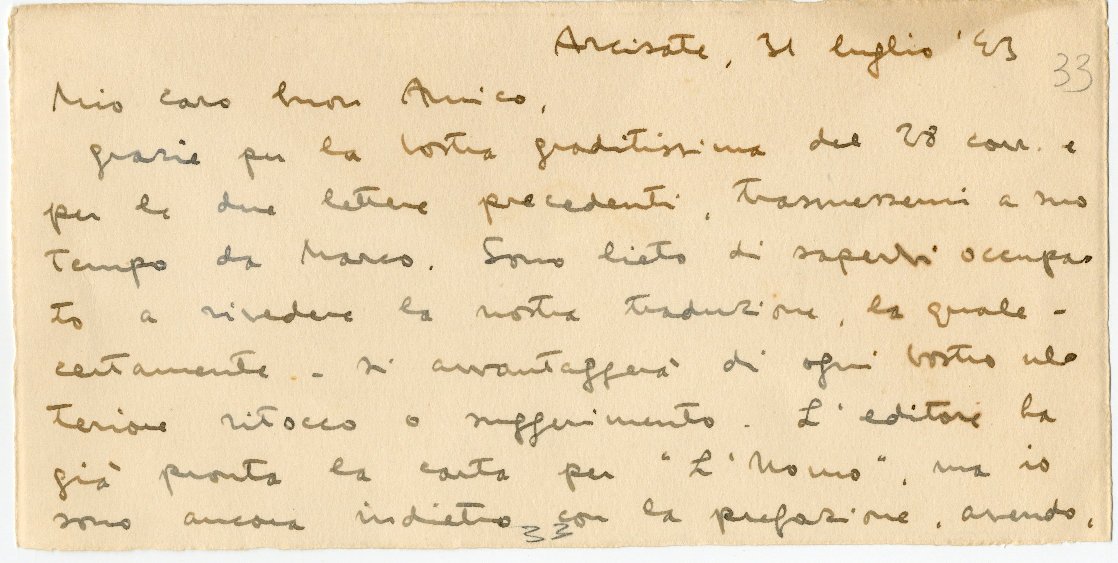 Arcisate, 31 luglio '43
33
Mio caro buon Amico,
grazie per la vostra graditissima del 28 corr. e
per le due lettere precedenti, trasmessemi a suo
tempo da Marco. Sono lieto di sapervi occupa-
to a rivedere la nostra traduzione, la quale -
certamente - si avvantaggerà di ogni vostro ul-
teriore ritocco o suggerimento. L'editore ha
già pronta la carta per "L'Uomo", ma io
sono ancora indietro con la prefazione, avendo,
33